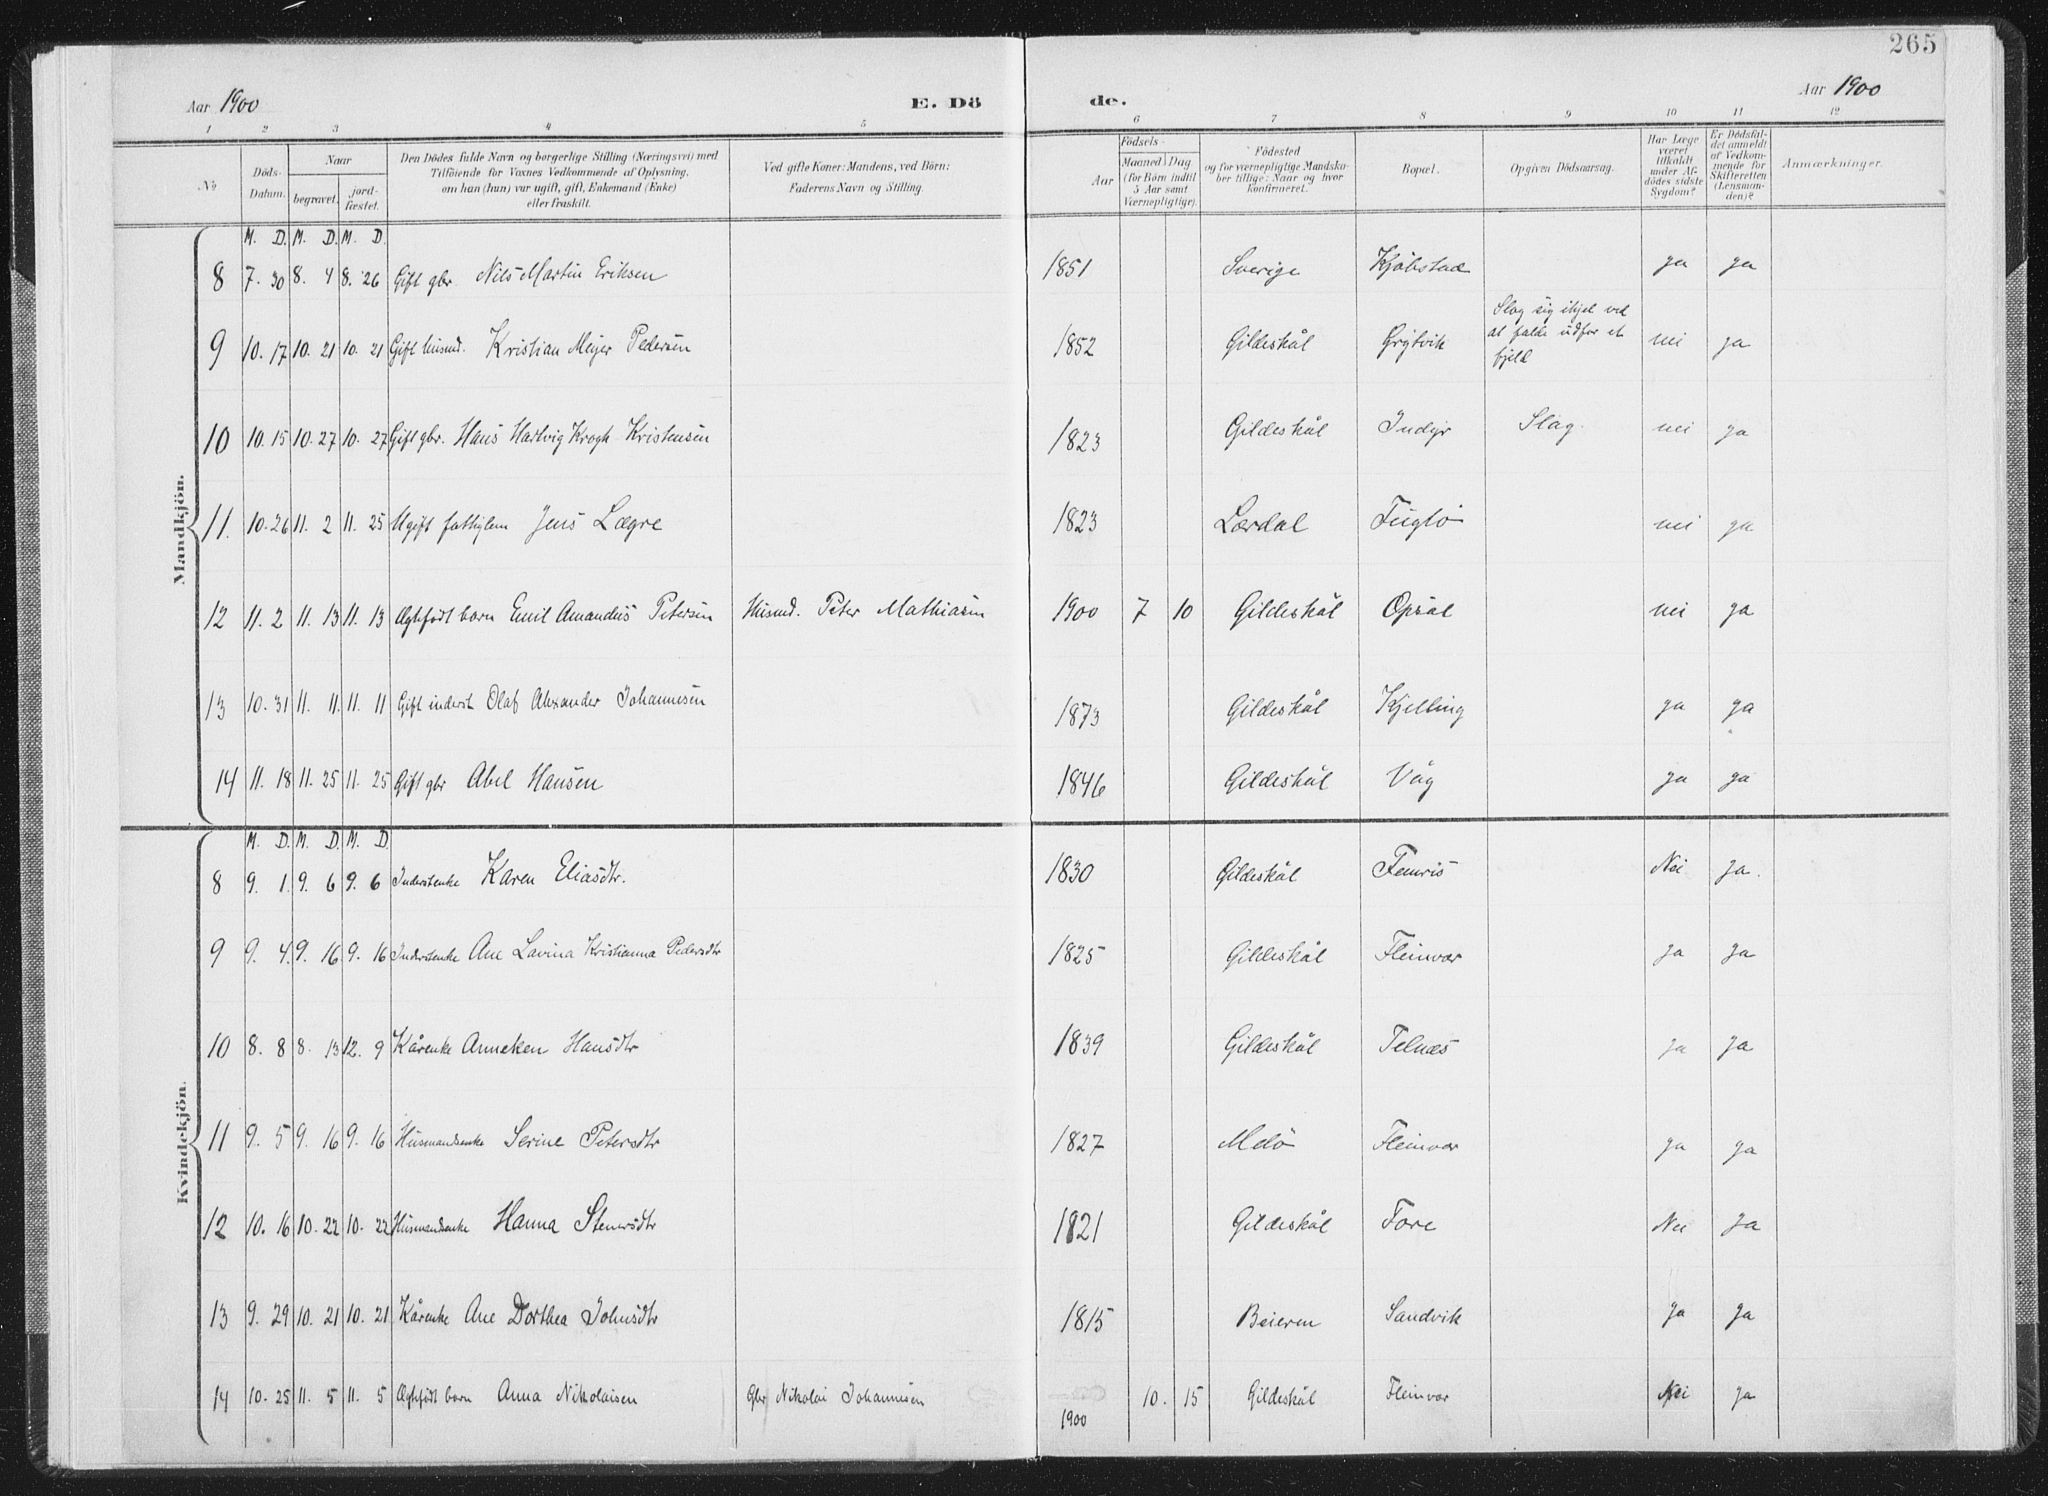 265
Aar 1900 E. Dö de. Aar 1900
1 2 3 4 5 6 7 8 9 10 11 12
No Döds-Datum. Naar begravet. jord-fæstet. Den Dödes fulde Navn og borgerlige Stilling (Næringsvei) med Tilföiende for Voxnes Vedkommende af Oplysning, om han (hun) var ugift, gift, Enkemand (Enke) eller fraskilt. Ved gifte Koner: Mandens, ved Börn: Faderens Navn og Stilling. Födsels- Aar Maaned Dag (for Börn indtil 5 Aar samt Værnepligtige). Födested og for værnepligtige Mandskaber tillige: Naar og hvor konfirmeret. Bopæl. Opgiven Dödsaarsag. Har Læge været tilkaldt under Afdödes sidste Sygdom? Er Dödsfaldet anmeldt af Vedkommende for Skifteretten (Lensmanden)? Anmærkninger.
Mandkjön.
M. D. M. D. M. D.
8 7. 30 8. 4 8. 26 Gift gbr. Nils Martin Eriksen 1851 Sverige Kjöbstad ja ja
9 10. 17 10. 21 10. 21 Gift husmd. Kristian Meyer Pedersen 1852 Gildeskål Grytvik Slog sig ihjel ved at falde udfor et fjeld nei ja
10 10. 15 10. 27 10. 27 Gift gbr. Hans Hartvig Krogh Kristensen 1823 Gildeskål Indyr Slag. nei ja
11. 10. 26 11. 2 11. 25 Ugift fattiglem Jens Lægre 1823 Lærdal Fuglö nei ja
12 11. 2 11. 13 11. 13 Ægtefödt barn Emil Amandus Petersen Husmd. Peter Mathiasen 1900 7 10 Gildeskål Opsal nei ja
13 10. 31 11. 11. 11. 11 Gift inderst Olaf Alexander Johannesen 1873 Gildeskål Kjelling ja ja
14 11. 18 11. 25 11. 25 Gift gbr Abel Hansen 1846 Gildeskål Våg ja ja
Kvindekjön.
M. D. M. D. M. D.
8 9. 1. 9. 6 9. 6 Inderstenke Karen Eliasdtr. 1830 Gildeskål Femris Nei Ja.
9 9. 4. 9. 16 9. 16 Inderstenke Ane Lavina Kristianna Pedersdtr 1825 Gildeskål Fleinvær Ja Ja
10 8. 8 8. 13 12. 9 Kårenke Anneken Hansdtr 1839 Gildeskål Telnæs ja Ja
11 9. 5 9. 16 9. 16 Husmandsenke Serine Petersdtr 1827 Melö Fleinvær ja ja
12 10. 16 10. 22 10. 22 Husmandsenke Hanna Stenersdtr 1821 Gildeskål Fore Nei Ja
13 9. 29 10. 21 10. 21 Kårenke Ane Dorthea Johnsdtr 1815 Beieren Sandvik Ja Ja
14 10. 25 11. 5 11. 5 Ægtefödt barn Anna Nikolaisen Gbr Nikolai Johannesen 1900 10. 15 Gildeskål Fleinvær Nei Ja